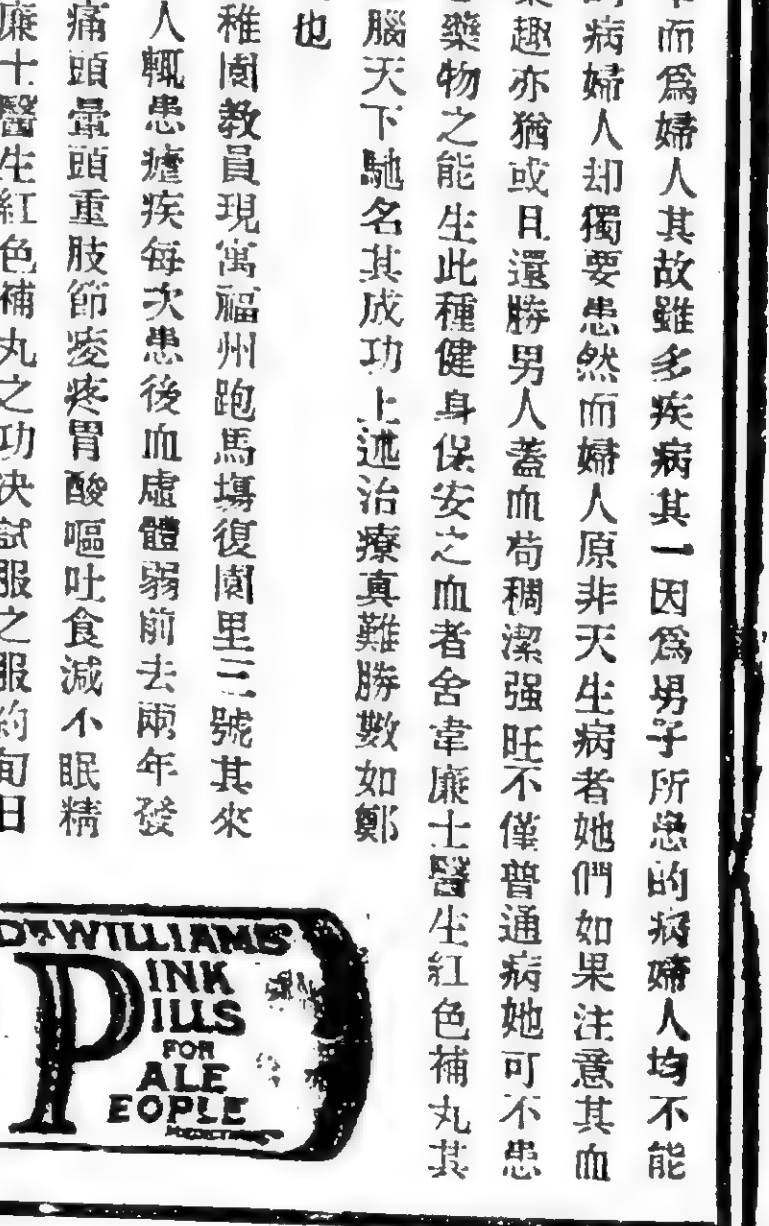 而爲婦人其故雖多疾病其一因爲男子所患的病婦人均不能
病婦人却獨要患然而婦人原非天生病者她們如果注意其血
趣亦猶或且還勝男人蓋血苟稠潔强旺不僅普通病她可不患
藥物之能生此種健身保安之血者舍韋廉士醫生紅色補丸其
腦天下馳名其成功上述治療真難勝數如鄭
也
稚園教員現寓福州跑馬塲復園里三號其來
人輒患瘧疾每次患後血虛體弱前去兩年發
痛頭暈頭重肢節痠疼胃酸嘔吐食減不眠精
廉士醫生紅色補丸之功决試服之服約旬日
DR WILLIAMS
PINK
PILLS
FOR
PALE
PEOPLE